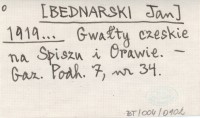 [BEDNARSKI Jan]
1919... Gwałty czeskie
na Spiszu i Orawie. –
Gaz. Podh. 7, nr 34.
BT/004/0402